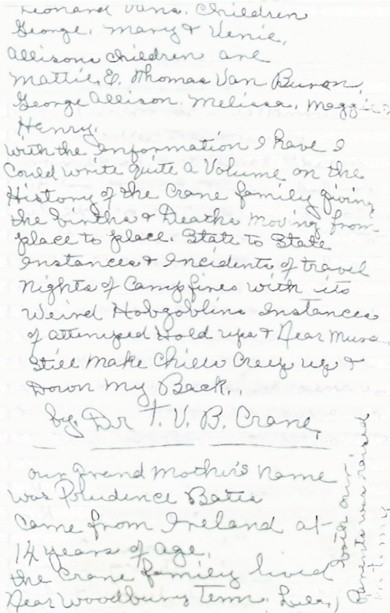 Leonard Vans. Children
George, Mary & Venie,
Allisons Children are
Mattie, E. Thomas Van Buren,
George Allison. Melissa, Maggie &
Henry.
with the Information I have I
Could write Quite a Volume on the
History of the Crane family giving
the births & Deaths moving from
place to place. State to State
Instances & Incidents of travel
Nights of Campfires with its
Weird Hobgoblins Instances
of attempted Hold ups & Near
still make Chills Creep up &
Down My Back.,
by Dr T. V. B. Crane,
our grand Mother's name
was Prudence Bates
Came from Ireland at
14 years of age,
the Crane family lived
Near Woodbury Tenn.
both our
parents was raised